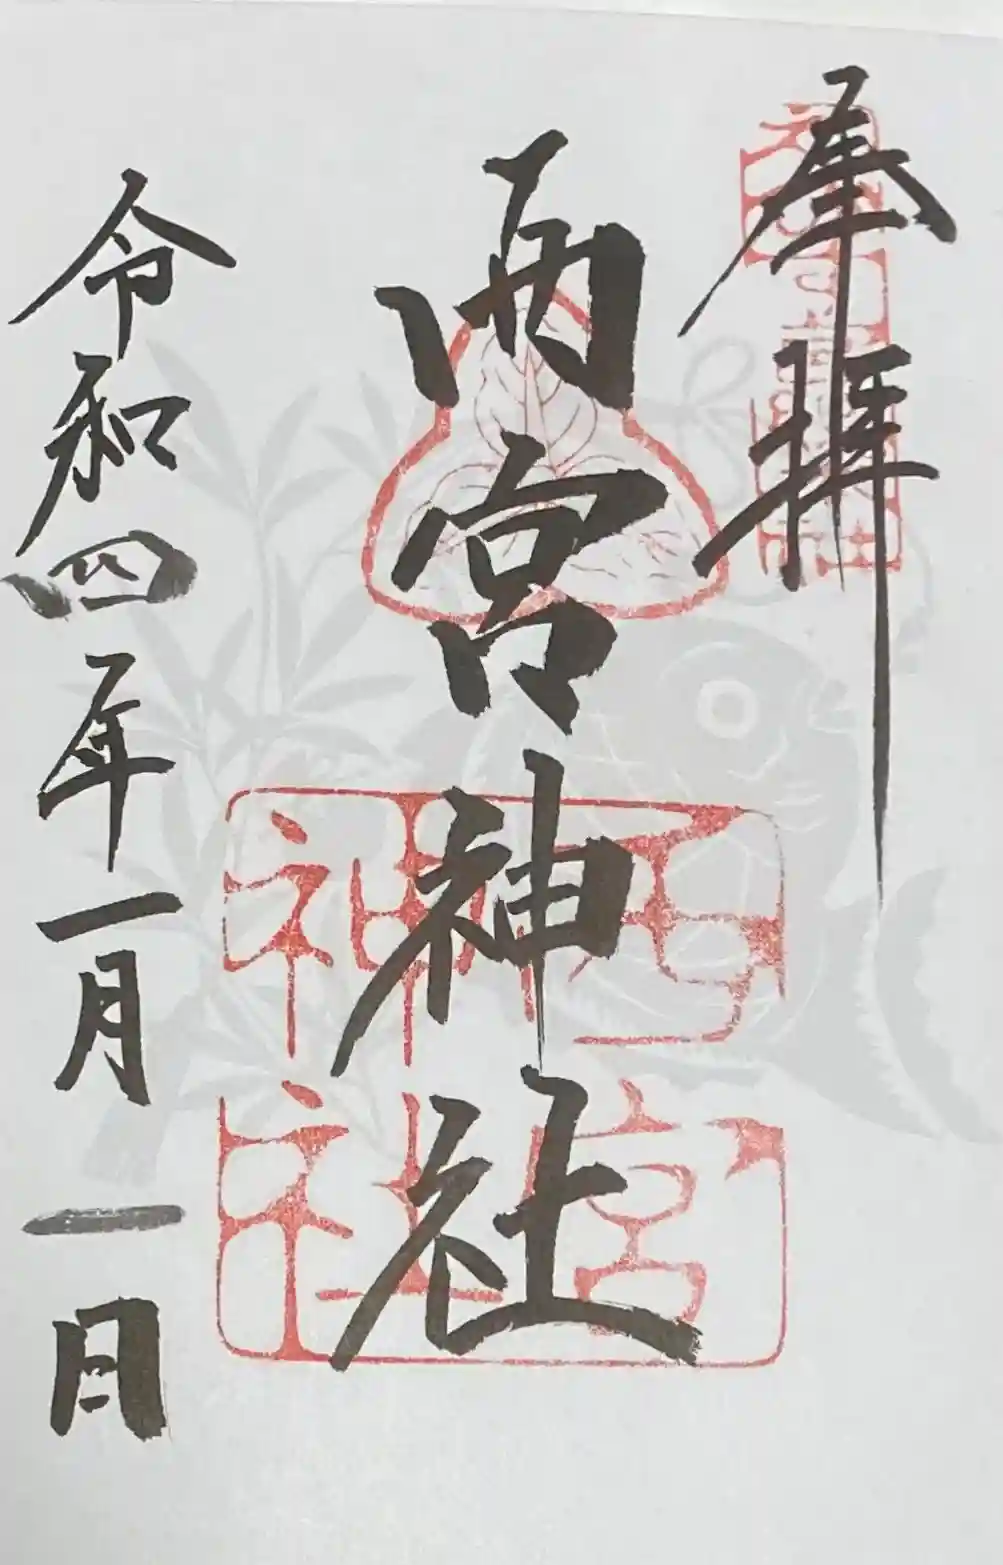 奉拝
西宮神社
西宮
神社
令和四年一月一日